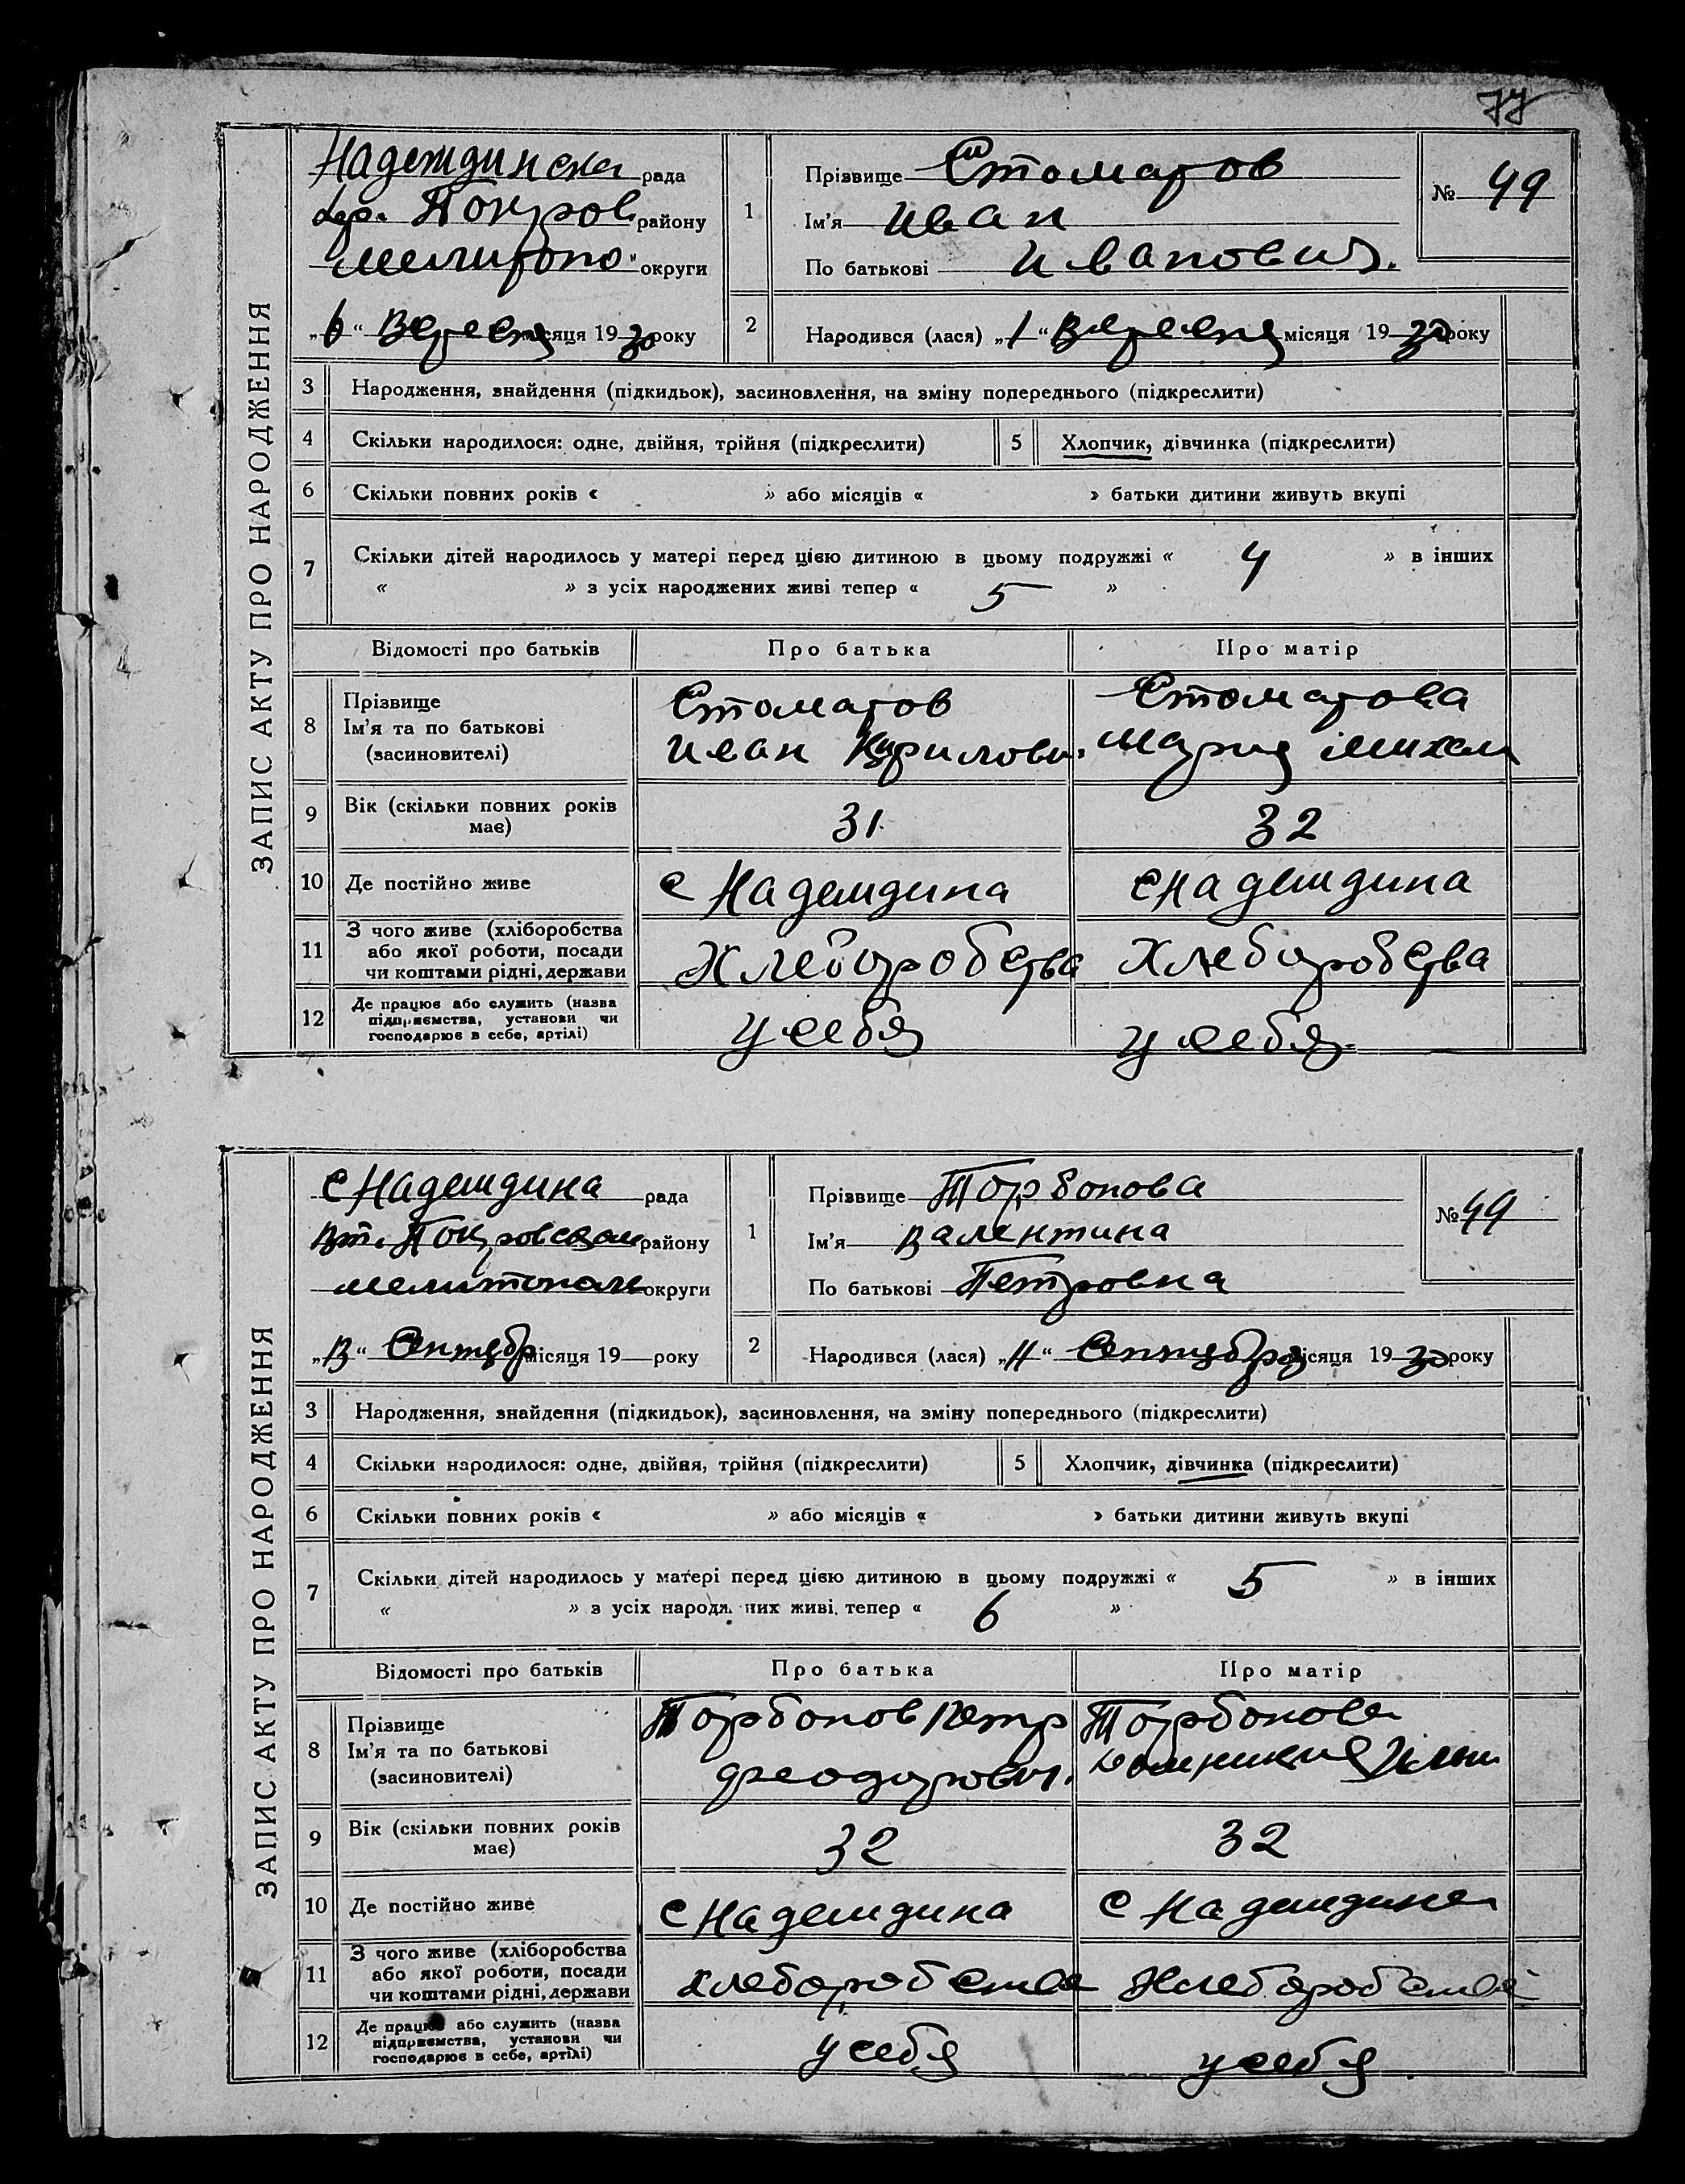 77
ЗАПИС АКТУ ПРО НАРОДЖЕННЯ
Надеждинска рада
Покров району
мелитопо округи
„6“ Вересня місяця 1930 року
1
Прізвище Стоматов
Ім'я Иван
По батькові Иванович.
№ 49
2
Народився (лася) „1“ Вересня місяця 1930 року
3 Народження, знайдення (підкидьок), засиновлення, на зміну попереднього (підкреслити)
4 Скільки народилося: одне, двійня, трійня (підкреслити) 5 Хлопчик, дівчинка (підкреслити)
6 Скільки повних років « » або місяців « » батьки дитини живуть вкупі
7 Скільки дітей народилось у матері перед цією дитиною в цьому подружжі « 4 » в інших
« » з усіх народжених живі тепер « 5 »
Відомості про батьків Про батька Про матір
8 Прізвище Ім'я та по батькові (засновителі)
Стоматов Стоматова
Иван Кирилови. Мария Михаи
9 Вік (скільки повних років має) 31. 32
10 Де постійно живе с Надеждина с Надеждина
11 З чого живе (хліборобства або якої роботи, посади чи коштами рідні, держави Хлеборобства Хлеборобства
12 Де працює або служить (назва підприємства, установи чи господарює в себе, артілі) у себя у себя.
ЗАПИС АКТУ ПРО НАРОДЖЕННЯ
с Надеждина рада
Покровском району
мелитополь округи
„13“ Сентябр місяця 19 року
1
Прізвище Торбонова
Ім'я Валентина
По батькові Петровна
№ 49
2
Народився (лася) „11“ Сентября місяця 1930 року
3 Народження, знайдення (підкидьок), засиновлення, на зміну попереднього (підкреслити)
4 Скільки народилося: одне, двійня, трійня (підкреслити) 5 Хлопчик, дівчинка (підкреслити)
6 Скільки повних років « » або місяців « » батьки дитини живуть вкупі
7 Скільки дітей народилось у матері перед цією дитиною в цьому подружжі « 5 » в інших
« » з усіх народжених живі тепер « 6 »
Відомості про батьків Про батька Про матір
8 Прізвище Ім'я та по батькові (засиновителі)
Торбонов Петр Торбонова
Феодорович.
9 Вік (скільки повних років має) 32 32
10 Де постійно живе с Надеждина с Надеждина
11 З чого живе (хліборобства або якої роботи, посади чи коштами рідні, держави хлеборобства Хлеборобства
12 Де працює або служить (назва підприємства, установи чи господарює в себе, артілі) у себя у себя